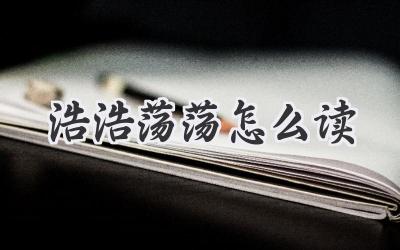 浩浩荡荡怎么读